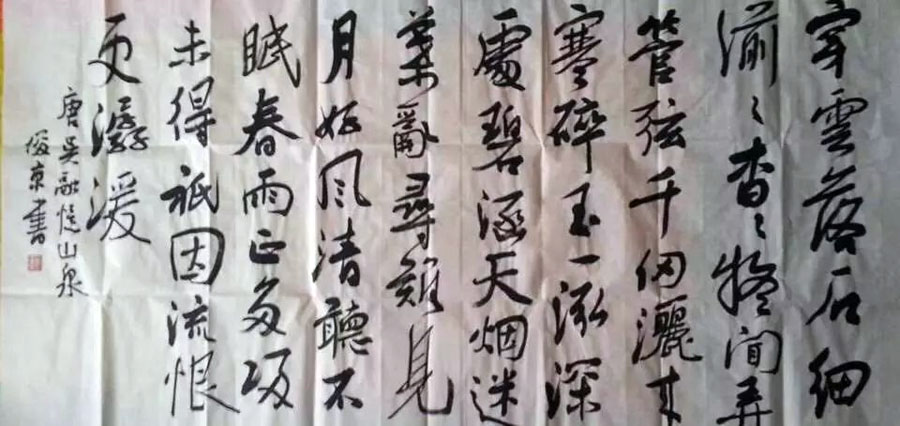 穿雲落石細
湔〻杳〻疑聞弄
管弦千仞灑來
寒碎玉一泓深
處碧涵天烟迷
葉亂尋難見
月好風清聽不
眠春雨正多歸
未得祇因流恨
更潺湲
唐吴融憶山泉
俊東書